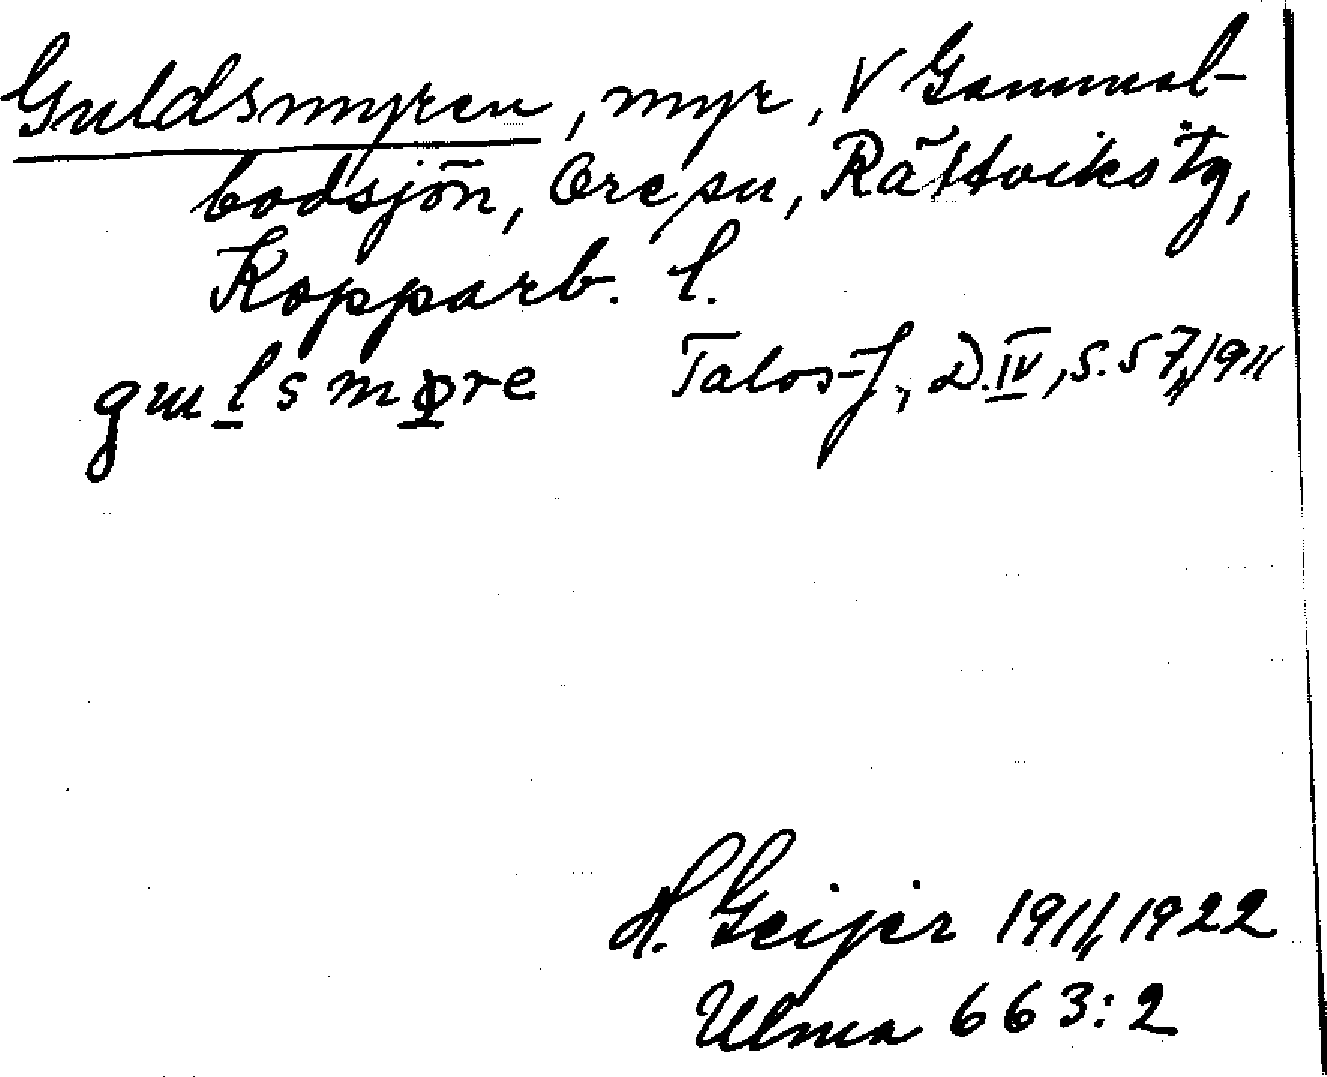 Guldsmyren, myr, V Gammal-
bodsjön, Ore sn, Rättviks tg,
Kopparb. l.
gulsmyre Talos-J, D.IV, s.57, 1911
H. Geijer 1911, 1922
Ulma 663:2